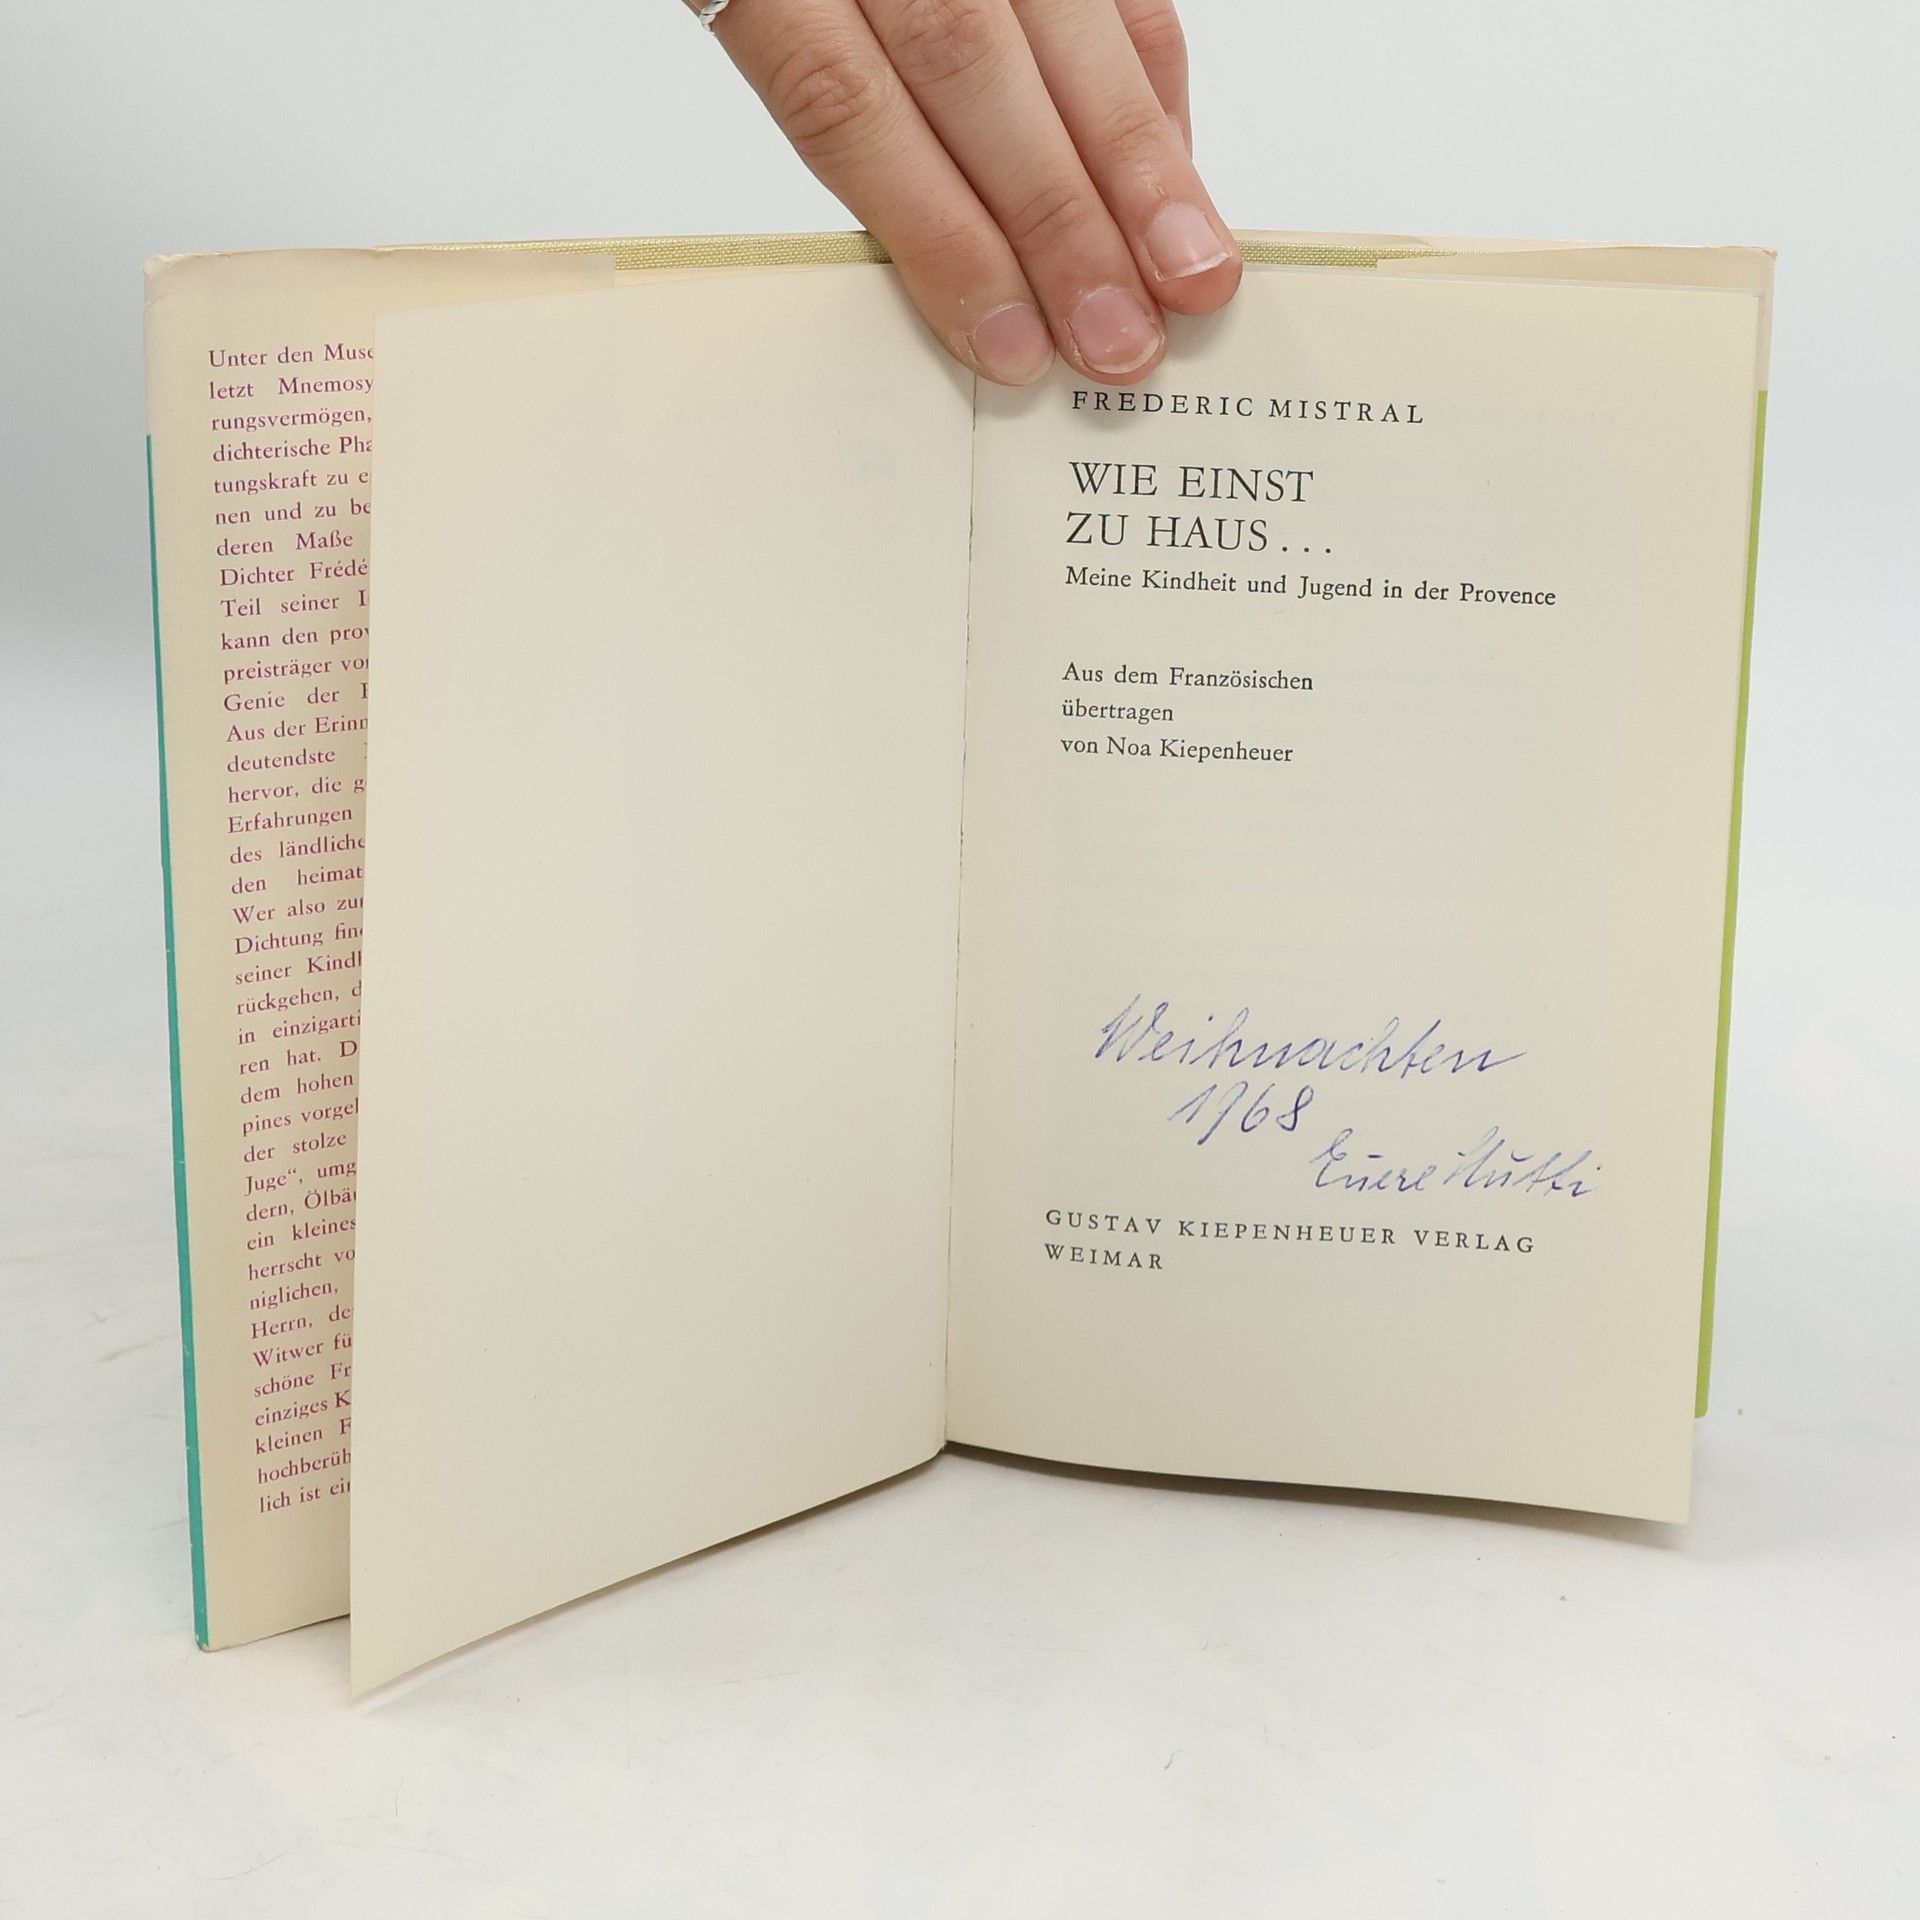 Unter den Muse
letzt Mnemosy
rungsvermögen,
dichterische Pha
tungskraft zu e
nen und zu be
deren Maße
Dichter Frédé
Teil seiner I
kann den prov
preisträger vo
Genie der
Aus der Erinn
deutendste
hervor, die g
Erfahrungen
des ländliche
den heimat
Wer also zu
Dichtung fin
seiner Kind
rückgehen, d
in einzigarti
ren hat. D
dem hohen
pines vorge
der stolze
Juge“, umg
dern, Ölbä
ein kleines
herrscht vo
niglichen,
Herrn, de
Witwer fü
schöne Fr
einziges K
kleinen F
hochberüh
lich ist ein
FREDERIC MISTRAL
WIE EINST
ZU HAUS...
Meine Kindheit und Jugend in der Provence
Aus dem Französischen
übertragen
von Noa Kiepenheuer
Weihnachten
1968
Euere Mutti
GUSTAV KIEPENHEUER VERLAG
WEIMAR